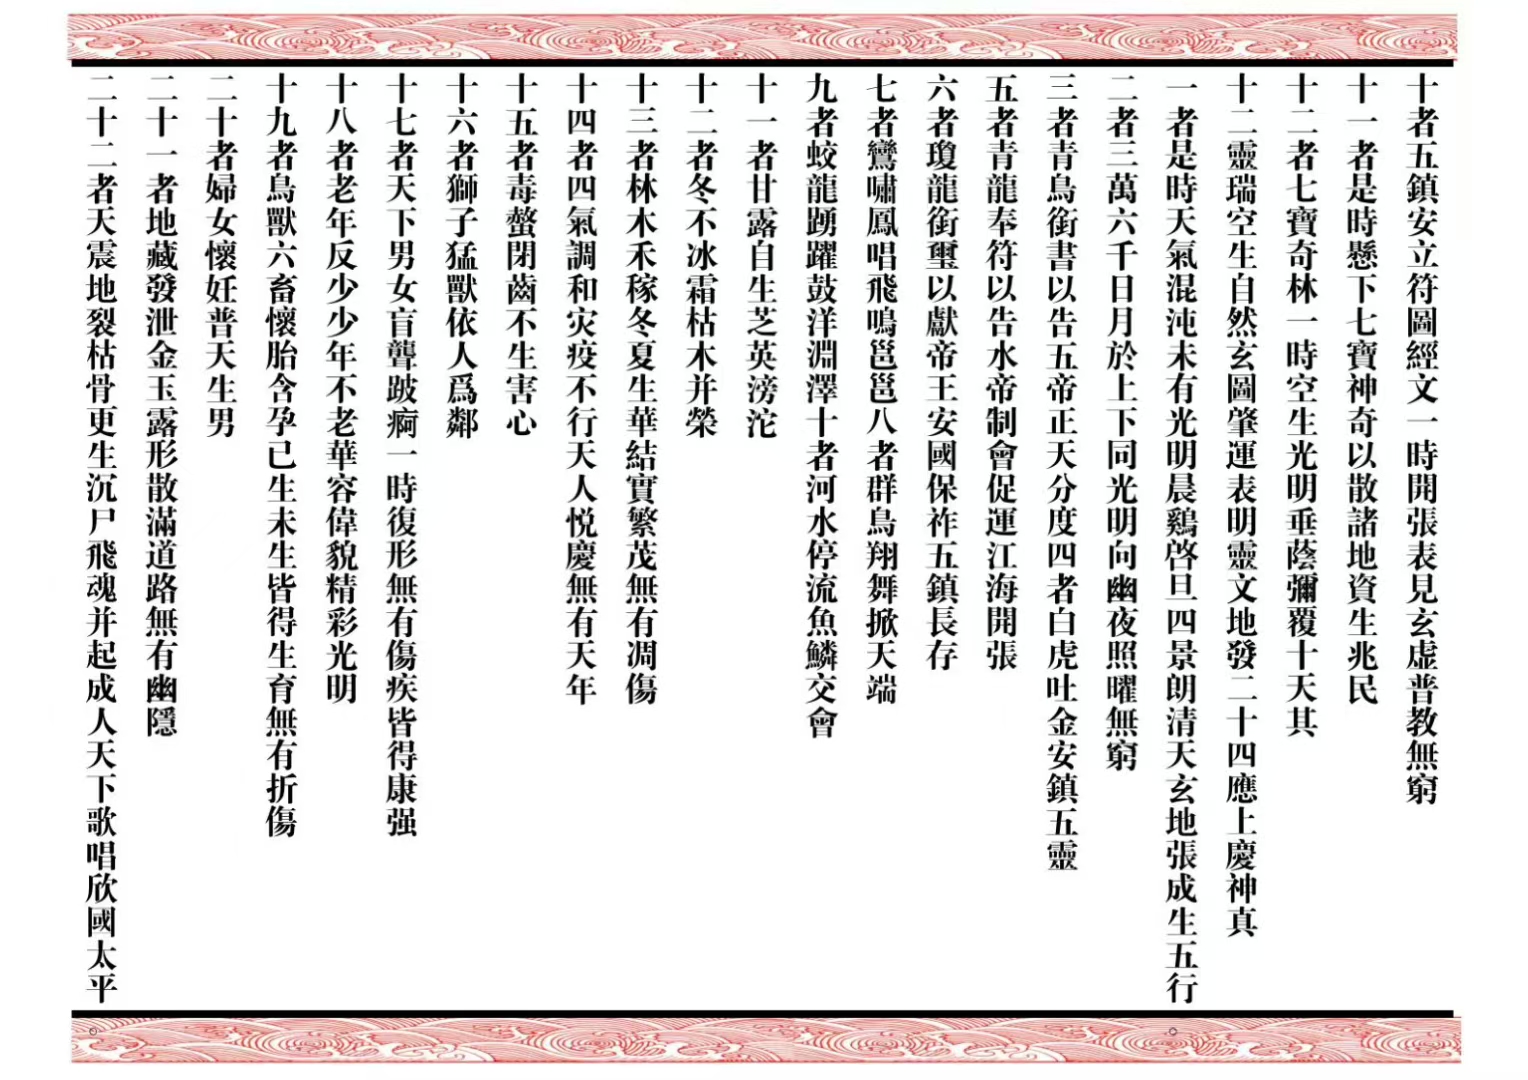 十者五鎮安立符圖經文一時開張表見玄虛普教無窮
十一者是時懸下七寶神奇以散諸地資生兆民
十二者七寶奇林一時空生光明垂蔭彌覆十天其
十二靈瑞空生自然玄圖肇運表明靈文地發二十四應上慶神真
一者是時天氣混沌未有光明晨鷄啓旦四景朗清天玄地張成生五行
二者三萬六千日月於上下同光明向幽夜照曜無窮
三者青鳥銜書以告五帝正天分度四者白虎吐金安鎮五靈
五者青龍奉符以告水帝制會促運江海開張
六者瓊龍銜璽以獻帝王安國保祚五鎮長存
七者鸞嘯鳳唱飛鳴邕邕八者群鳥翔舞掀天端
九者蛟龍踴躍鼓洋淵澤十者河水停流魚鱗交會
十一者甘露自生芝英滂沱
十二者冬不冰霜枯木并榮
十三者林木禾稼冬夏生華結實繁茂無有凋傷
十四者四氣調和灾疫不行天人悦慶無有夭年
十五者毒螫閉齒不生害心
十六者獅子猛獸依人爲鄰
十七者天下男女盲聾跛痾一時復形無有傷疾皆得康强
十八者老年反少少年不老華容偉貌精彩光明
十九者鳥獸六畜懷胎含孕已生未生皆得生育無有折傷
二十者婦女懷妊普天生男
二十一者地藏發泄金玉露形散滿道路無有幽隱
二十二者天震地裂枯骨更生沉尸飛魂并起成人天下歌唱欣國太平